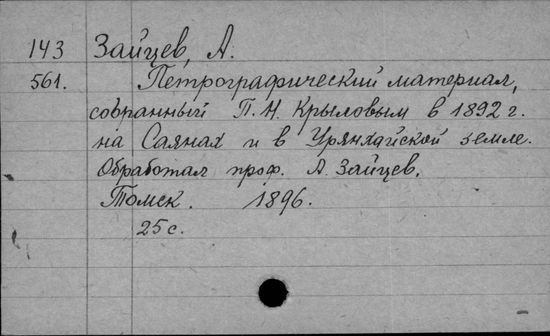 143 Зайцев, А.
561. Петрографический материал,
собранный П. Н. Крыловым в 1892 г.
на Саянах и в Урянхайской земле.
Обработал проф. А. Зайцев.
Томск. 1896.
25 с.